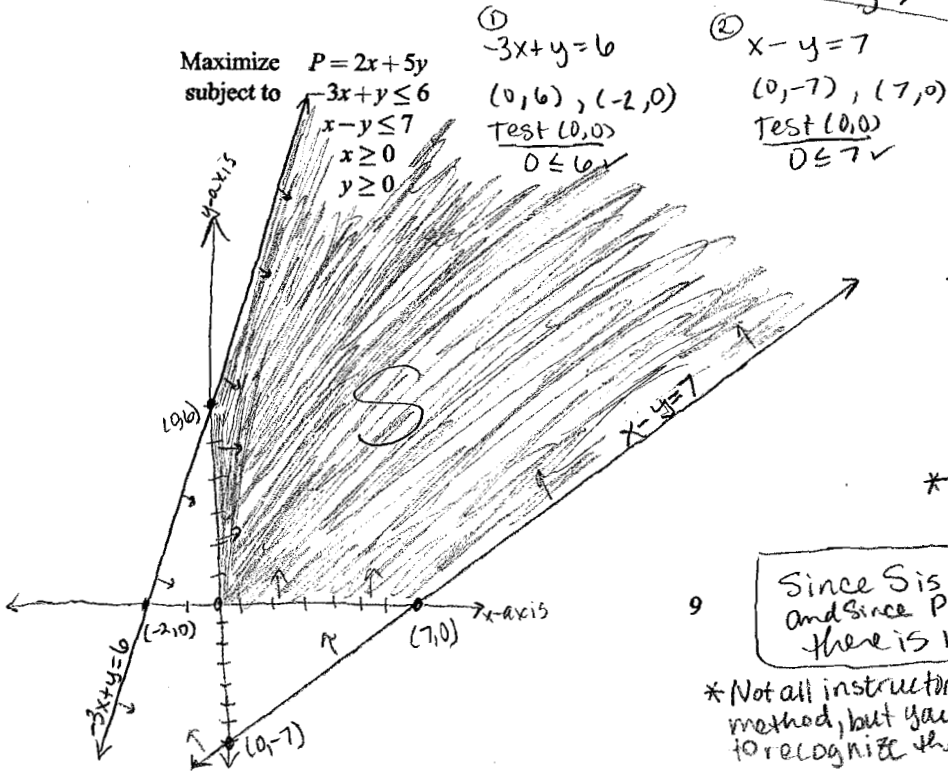 Maximize P = 2x + 5y
subject to -3x + y ≤ 6
x - y ≤ 7
x ≥ 0
y ≥ 0
①
-3x + y = 6
(0,6) , (-2,0)
Test (0,0)
0 ≤ 6 ✓
②
x - y = 7
(0,-7) , (7,0)
Test (0,0)
0 ≤ 7 ✓
y-axis
(0,6)
S
x-y=7
x-axis
(-2,0)
0
(7,0)
-3x+y=6
(0,-7)
*
9
Since S is
and since P
there is
*Not all instructor
method, but you
to recognize th